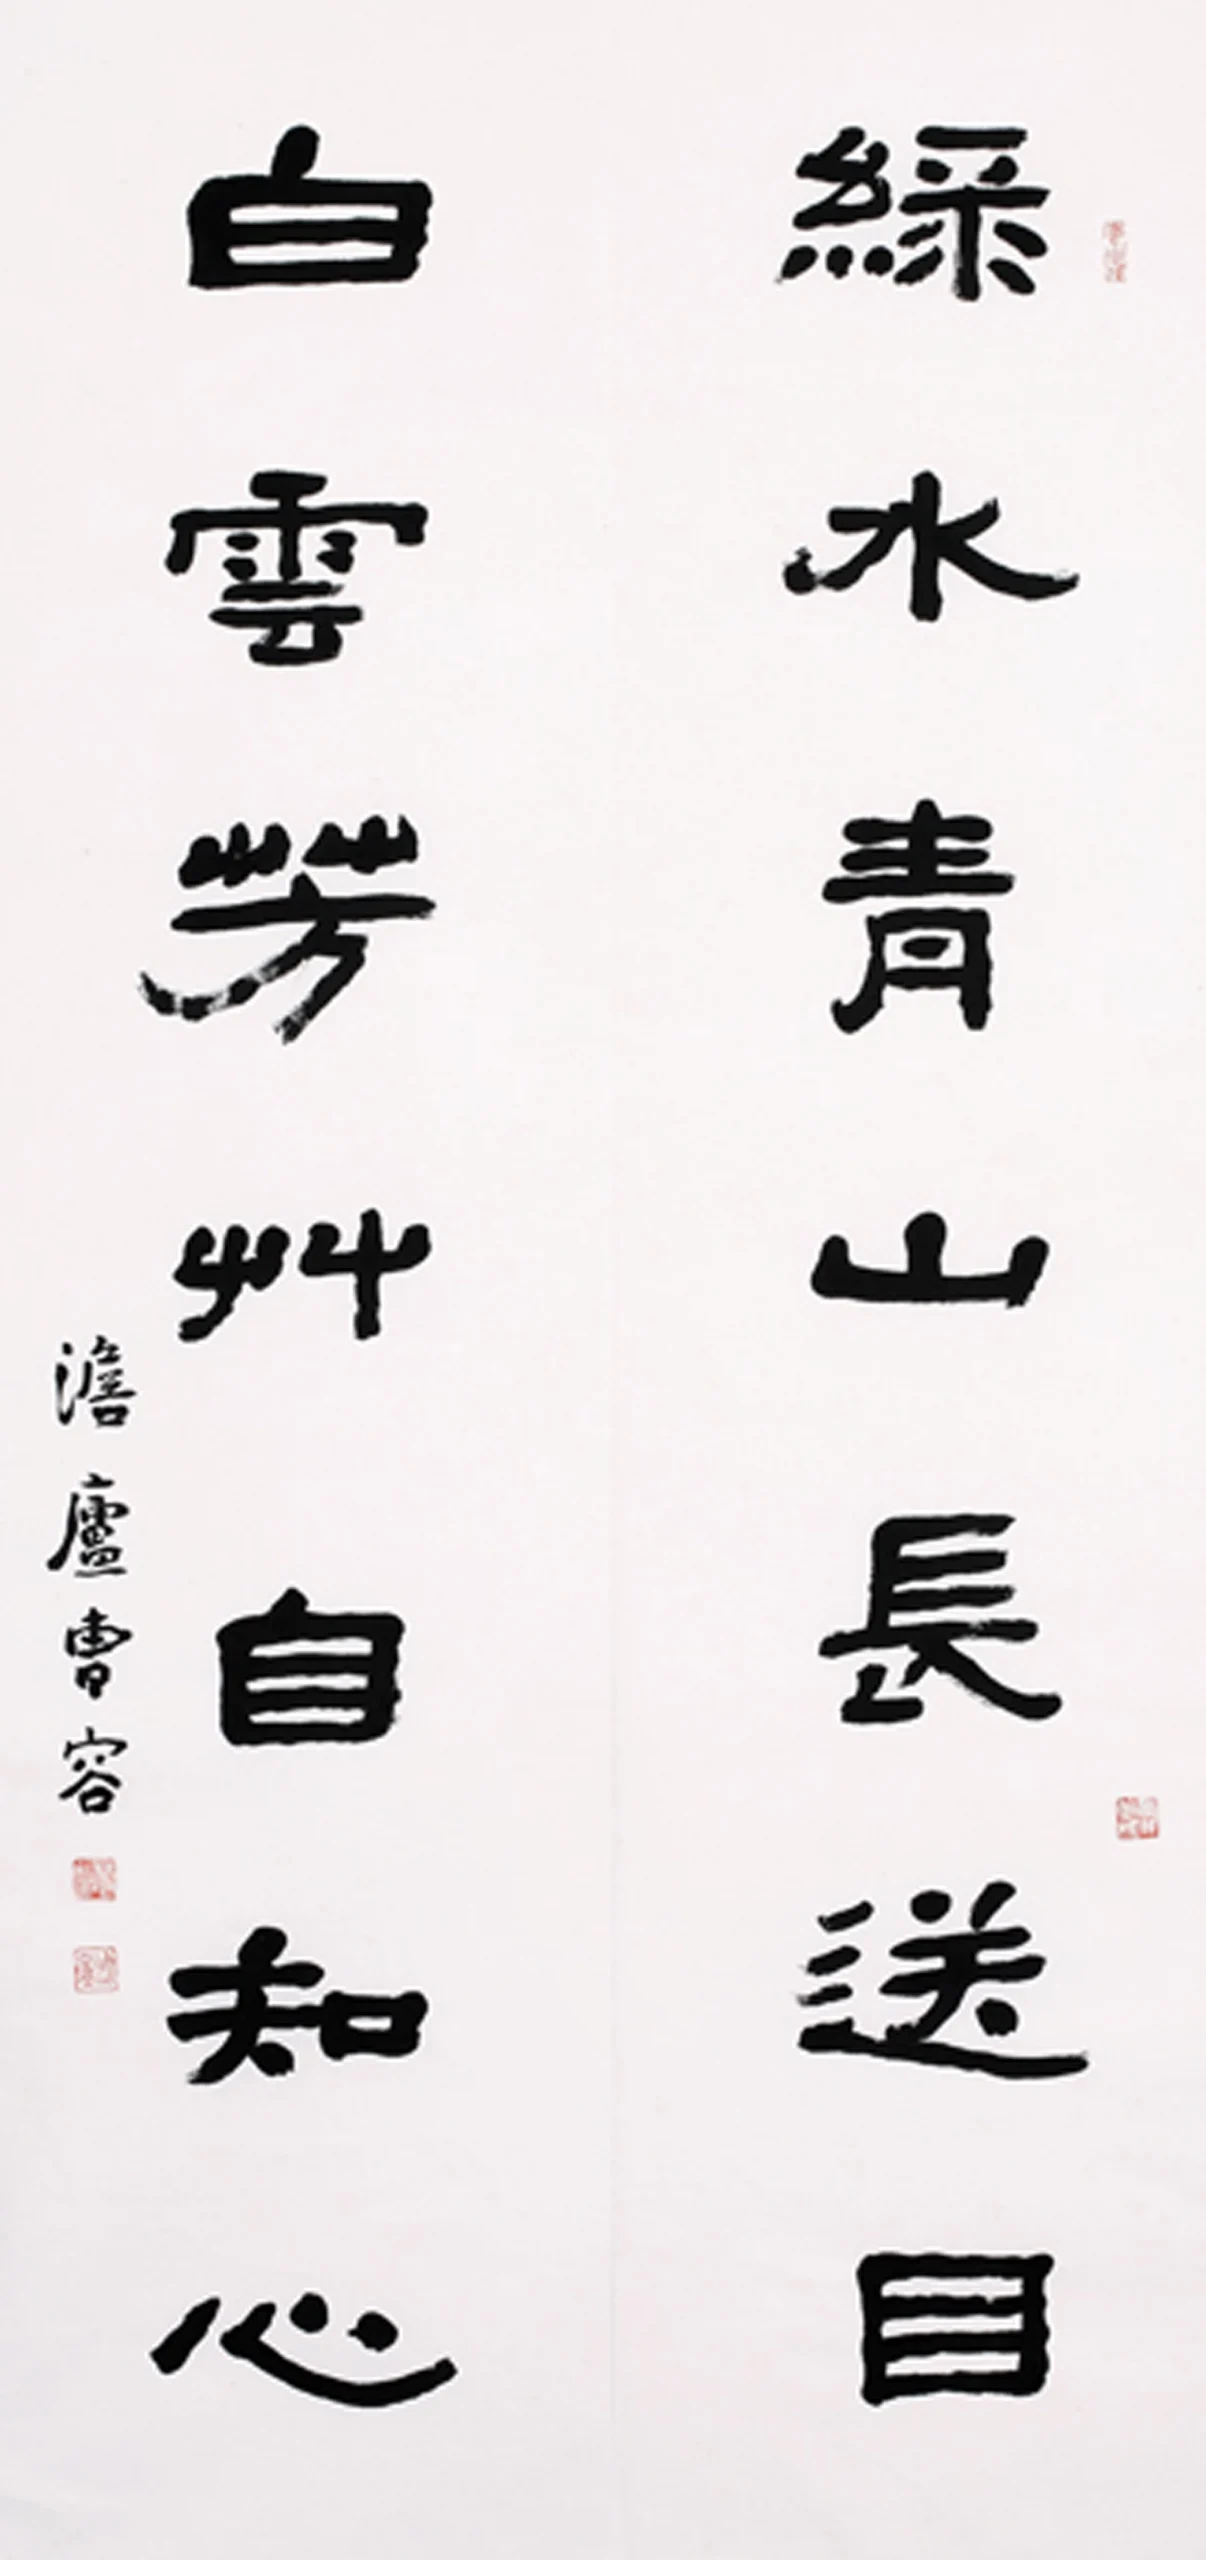 綵水青山長送目
白雲芳艸自知心
澹廬曹容